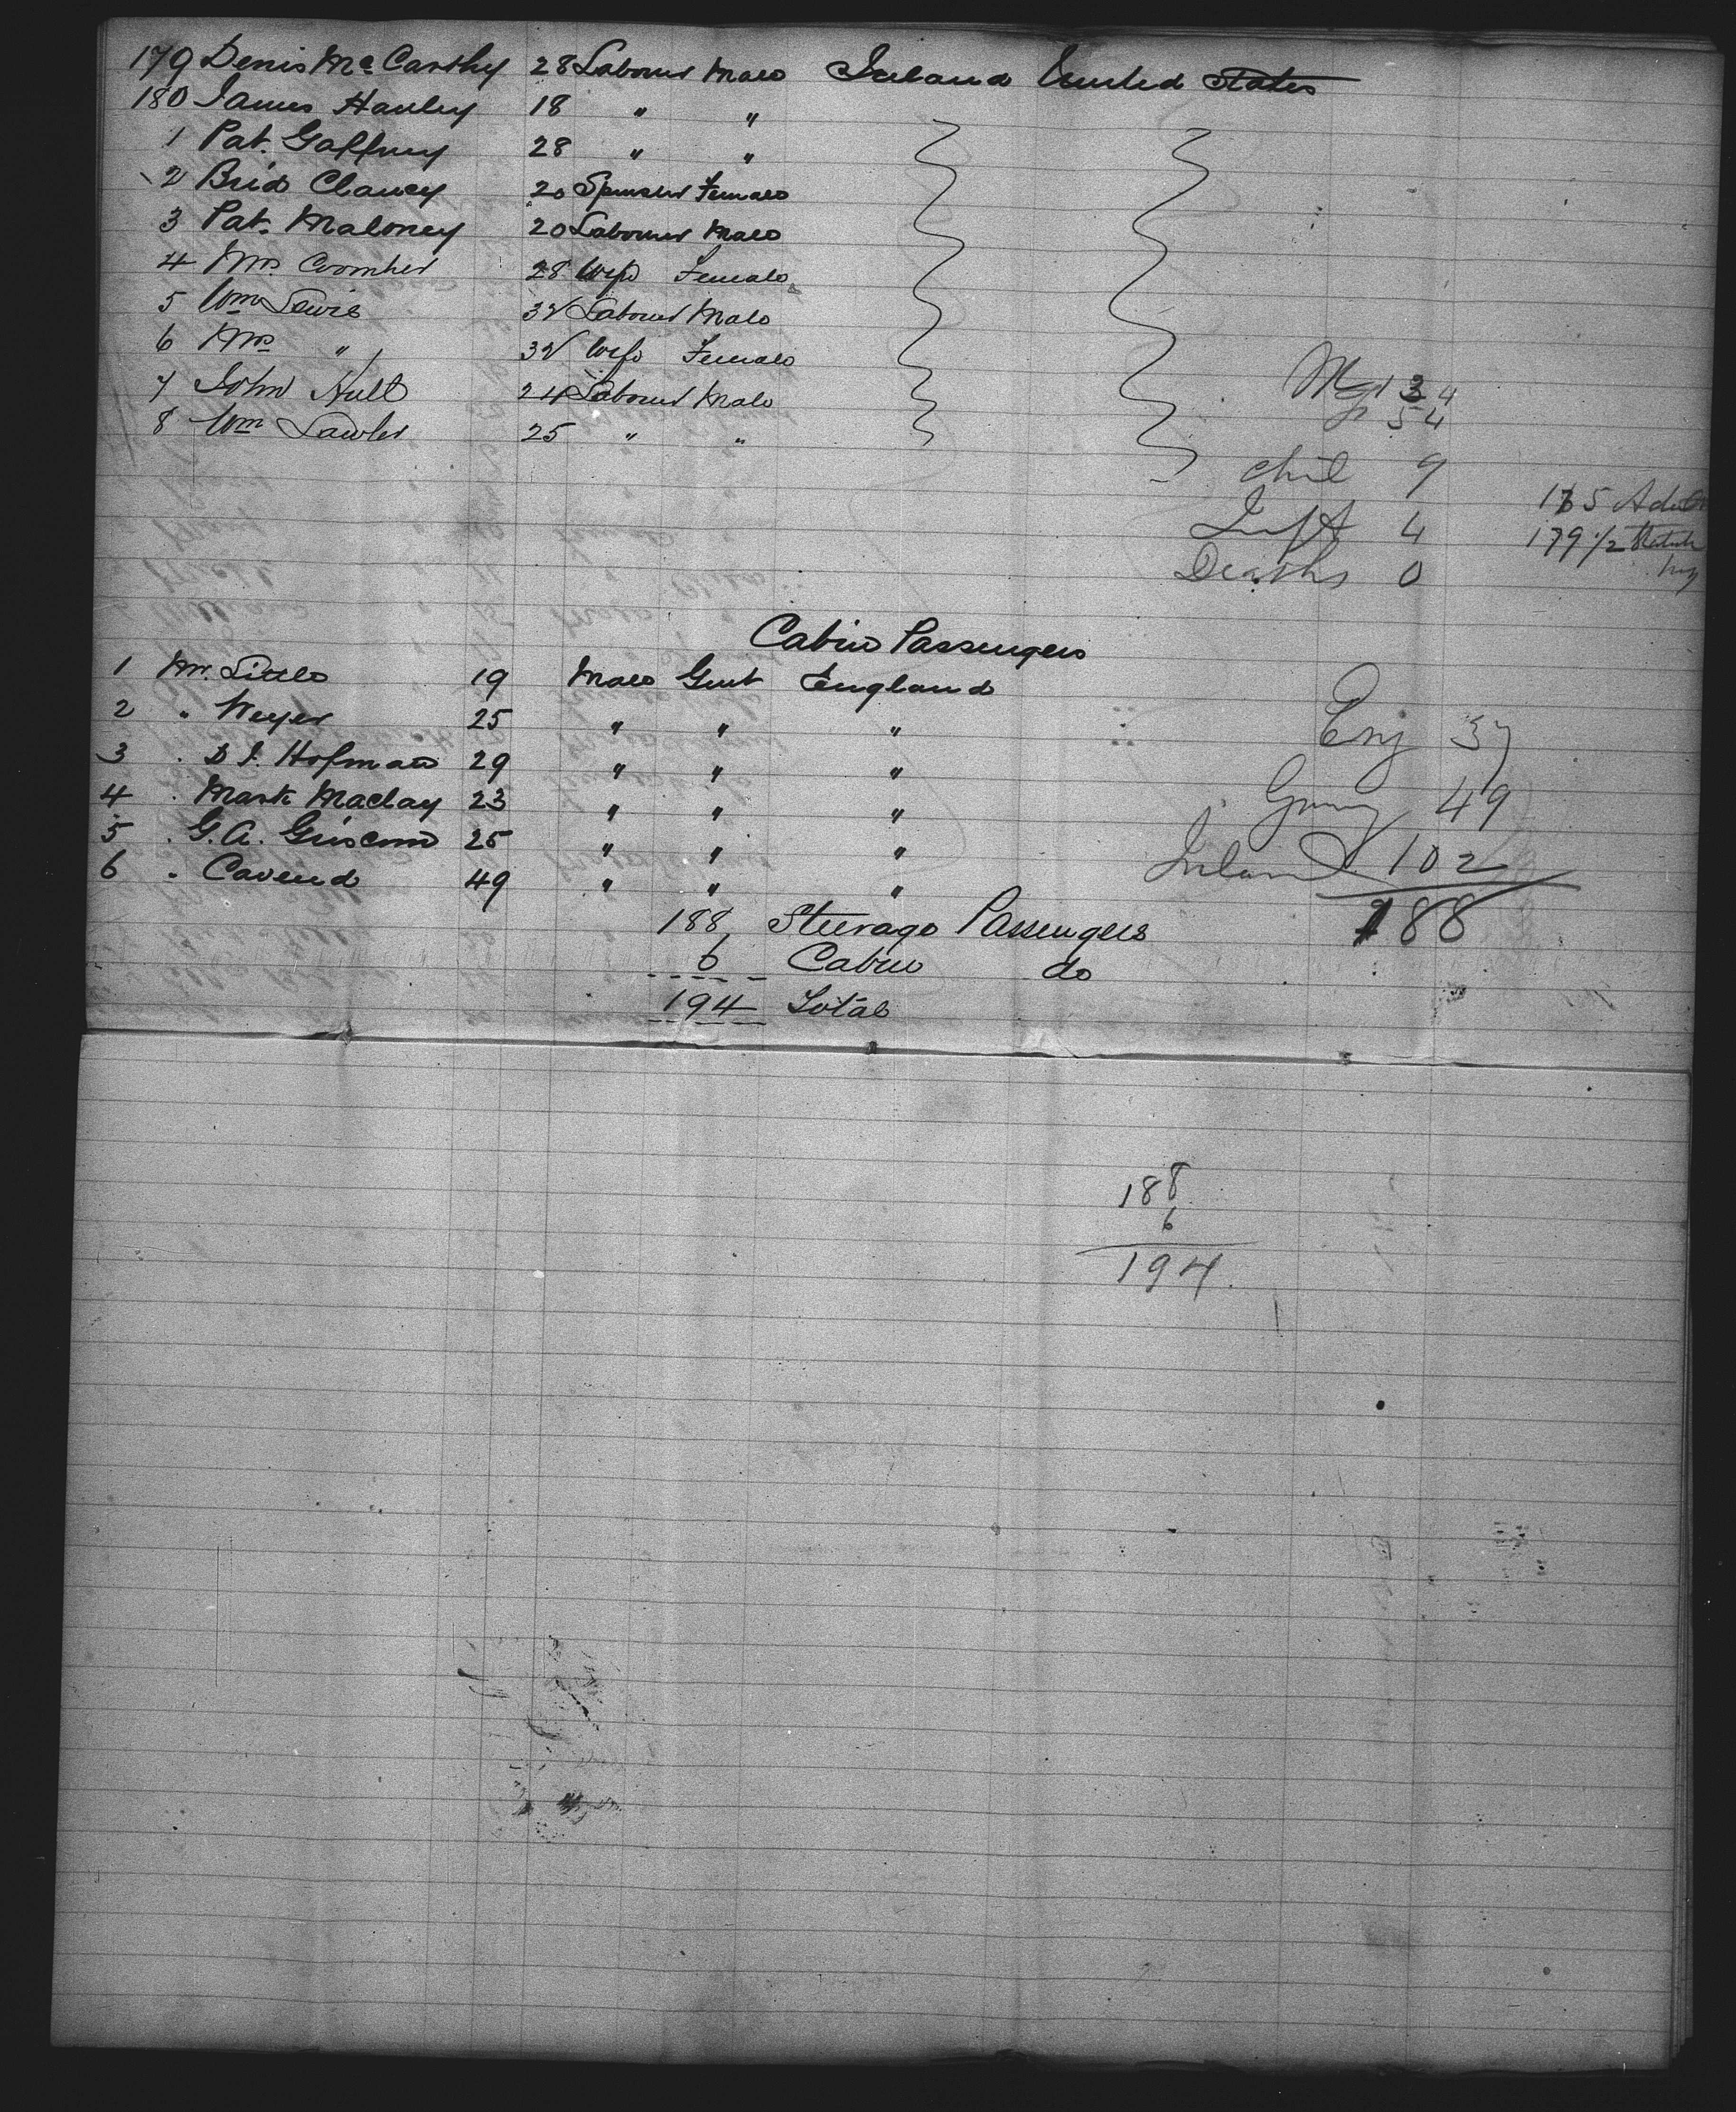 179 Denis McCarthy 28 Labourer Male Ireland United States
180 James Hanley 18 " "
1 Pat. Gaffney 28 " "
2 Brid Clancy 20 Spinster Female
3 Pat. Maloney 20 Labourer Male
4 Mrs Coomber 28 Wife Female
5 Wm Lewis 32 Labourer Male
6 Mrs " 32 Wife Female
7 John Hull 24 Labourer Male
8 Wm Lawler 25 " "
34
54
chil 9
Inft 4
Deaths 0
175 Adults
179 1/2
Cabin Passengers
1 Mr. Little 19 Male Gent England
2 " Weyer 25 " " "
3 " D. J. Hofman 29 " " "
4 " Mark Maclay 23 " " "
5 " G. A. Griscom 25 " " "
6 " Cavend 49 " " "
Eng 37
Germy 49
Ireland 102
188
188 Steerage Passengers
6 Cabin do
194 Total
188
6
194